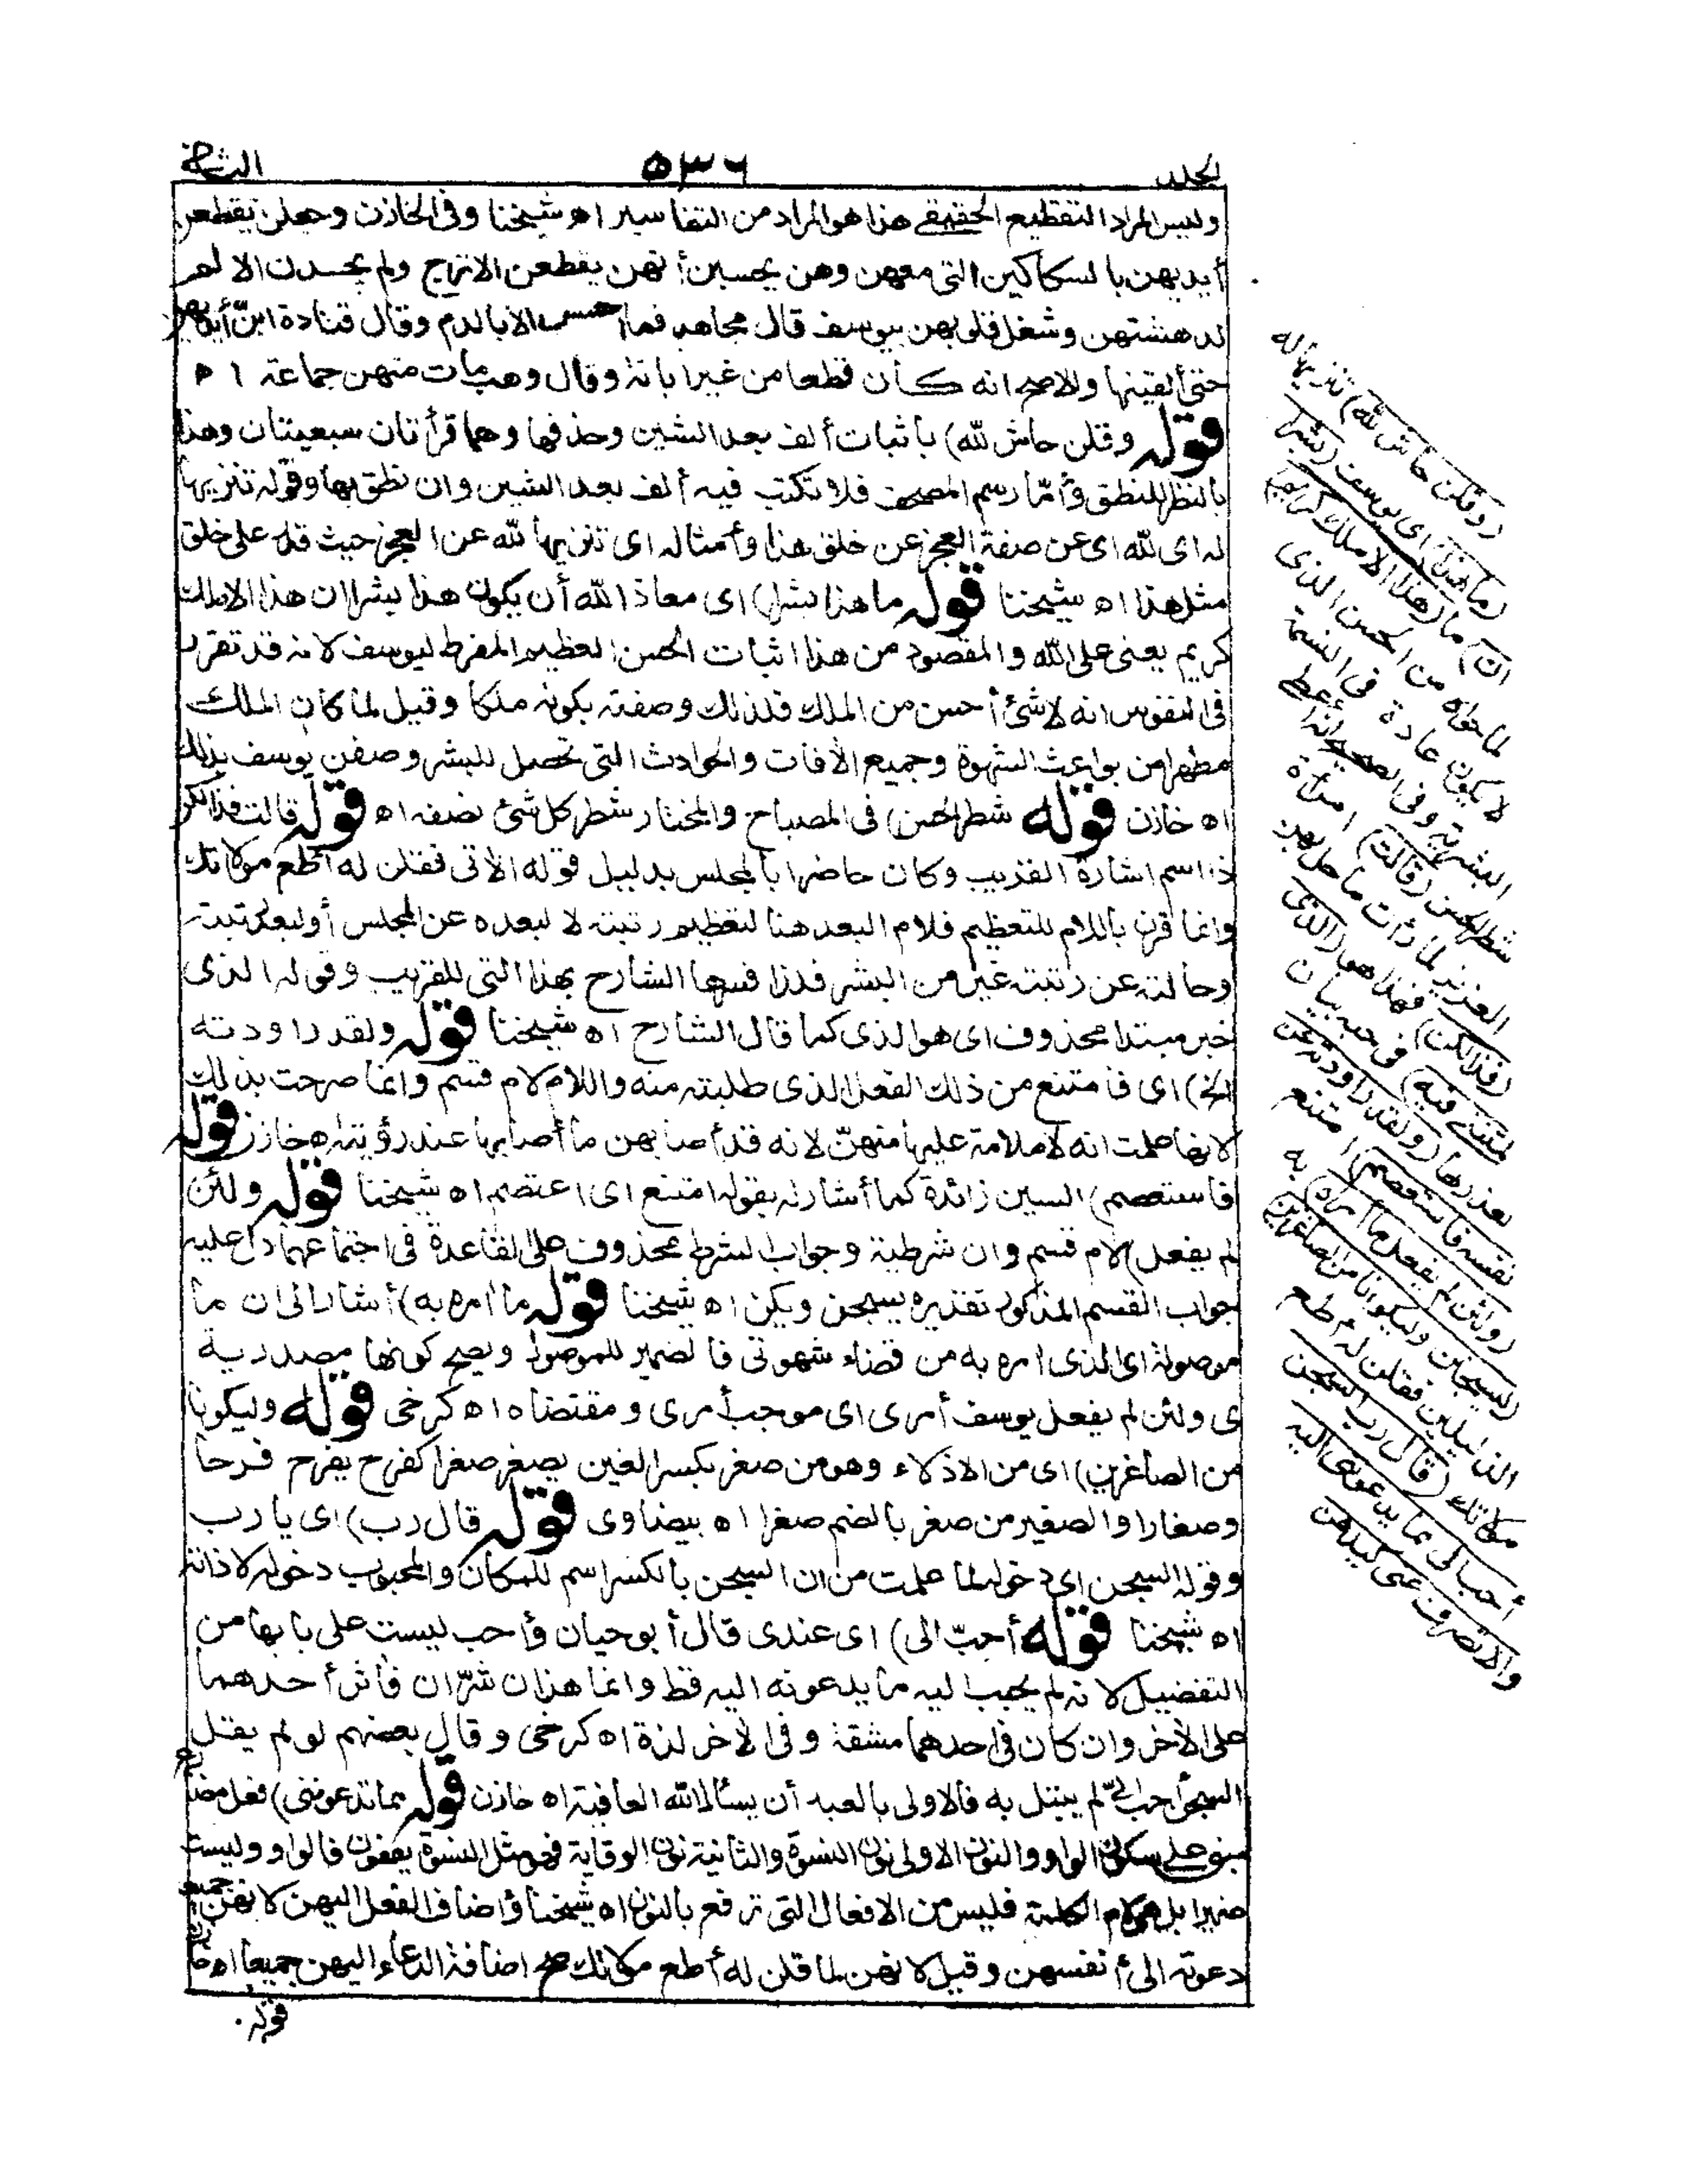 الجلد ٥٣٦ الثانى
وليس المراد التقطيع الحقيقى هذا هو المراد من التفاسير اه شيخنا وفى الخازن وجعلن يقطعن
أيديهن بالسكاكين التى معهن وهن يحسبن أنهن يقطعن الاترج ولم يجدن الالم
لدهشتهن وشغل قلوبهن بيوسف قال مجاهد فما أحسسن الا بالدم وقال قتادة ابنّ أيديهن
حتى ألقينها والاصح انه كان قطعا من غير ابانة وقال وهب مات منهن جماعة اه
قوله وقلن حاش لله) باثبات ألف بعد الشين وحذفها وهما قرأتان سبعيتان وهذا
بالنظر للنطق وأمّا رسم المصحف فلا تكتب فيه ألف بعد الشين وان نطق بها وقوله تنزيها
له اى لله اى عن صفة العجز عن خلق هذا وأمثاله اى تنزيها لله عن العجز حيث قدر على خلق
مثل هذا اه شيخنا قوله ما هذا بشرا) اى معاذ الله أن يكون هذا بشرا ان هذا الا ملك
كريم يعنى على الله والمقصود من هذا اثبات الحسن العظيم المفرط ليوسف لانه قد تقرر
فى النفوس انه لا شئ أحسن من الملك فلذلك وصفته بكونه ملكا وقيل لما كان الملك
مطهرا من بواعث الشهوة وجميع الأفات والحوادث التى تحصل للبشر وصفن يوسف بذلك
اه خازن قوله شطر الحسن) فى المصباح والمختار شطر كل شئ نصفه اه قوله قالت فذالكن
ذا اسم اشارة القريب وكان حاضرا بالمجلس بدليل قوله الأتى فقلن له أطع مولاتك
وانما قرن باللام للتعظيم فلام البعد هنا لتعظيم رتبته لا لبعده عن المجلس أو لبعد رتبته
وحالته عن رتبة غيره من البشر فلذا فسرها الشارح بهذا التى للقريب وقوله الذى
خبر مبتدا محذوف اى هو الذى كما قال الشارح اه شيخنا قوله ولقد راودته
الخ) اى فامتنع من ذلك الفعل الذى طلبته منه واللام لام قسم وانما صرحت بذلك
لانها علمت انه لا ملامة عليها منهنّ لانه قد أصابهن ما أصابها عند رؤيته اه خازن قوله
فاستعصم) السين زائدة كما أشار له بقوله امتنع اى اعتصم اه شيخنا قوله ولئن
لم يفعل) لام قسم وان شرطية وجواب الشرط محذوف على القاعدة فى اجتماعهما دل عليه
جواب القسم المذكور تقديره يسجن ويكن اه شيخنا قوله ما امره به) أشار الى ان ما
موصولة اى الذى امره به من قضاء شهوتى فالضمير للموصول ويصح كونها مصدرية
اى ولئن لم يفعل يوسف أمرى اى موجب أمرى ومقتضاه اه كرخى قوله وليكونا
من الصاغرين) اى من الاذلاء وهو من صغر بكسر الغين يصغر صغرا كفرح يفرح فرحا
وصغارا والصغير من صغر بالضم صغرا اه بيضاوى قوله قال رب) اى يا رب
وقوله السجن اى دخوله لما علمت من ان السجن بالكسر اسم للمكان والمحبوب دخوله لا ذاته
اه شيخنا قوله أحبّ الى) اى عندى قال أبو حيان وأحب ليست على بابها من
التفضيل لانه لم يحبب ليه ما يدعونه اليه قط وانما هذان شرّان فأثر أحدهما
على الأخر وان كان فى احدهما مشقة وفى الأخر لذة اه كرخى وقال بعضهم لو لم يقل
السجن أحب الىّ لم يبتل به فالاولى بالعبد أن يسئال الله العافية اه خازن قوله مما تدعوننى) فعل مضارع
مبنى على سكون الواو والنون الاولى نون النسوة والثانية نون الوقاية فهو مثل النسوة يعفون فالواو وليست
ضميرا بل هى لام الكلمة فليس من الافعال التى ترفع بالنون اه شيخنا وأضاف الفعل اليهن لانهن جميعا
دعونه الى أنفسهن وقيل لانهن لما قلن له أطع مولاتك صح اضافة الدعاء اليهن جميعا اه خازن
قوله
(وقلن حاش لله) تنزيها له
(ما هذا) اى يوسف (بشرا
ان) ما (هذا الا ملك كريم)
لما حواه من الحسن الذى
لا يكون عادة فى النسمة
البشرية وفى الصحيح انه أعطى
شطر الحسن (قالت) امرأة
العزيز لما رأت ما حل بهن
(فذالكن) فهذا هو (الذى
لمتننى فيه) فى حبه بيان
لعذرها (ولقد راودته عن
نفسه فاستعصم) امتنع
(ولئن لم يفعل ما امره) به
(ليسجنن وليكونا من الصاغرين)
الذليلين فقلن له أطع
مولاتك (قال رب السجن
أحب الى مما يدعوننى اليه
والا تصرف عنى كيدهن